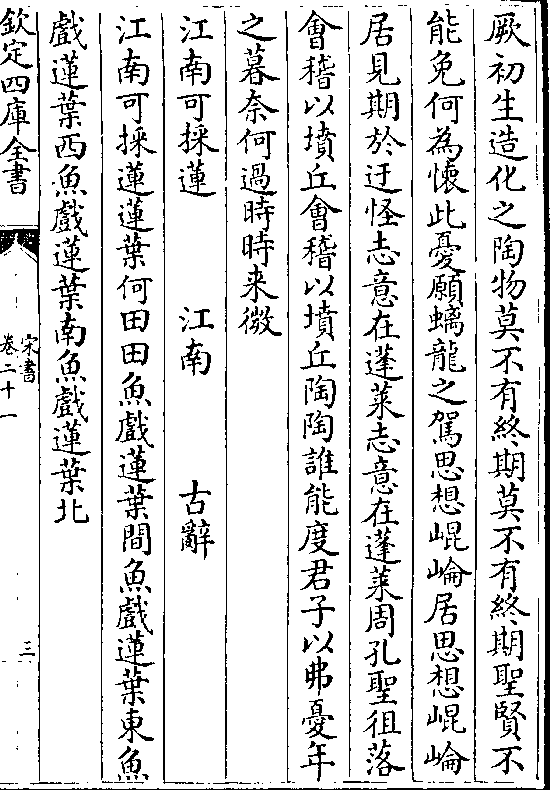 厥初生造化之陶物莫不有終期莫不有終期聖賢不
能免何為懷此憂願螭龍之駕思想崐崘居思想崐崘
居見期於迂怪志意在蓬萊志意在蓬萊周孔聖徂落
會稽以墳丘會稽以墳丘陶陶誰能度君子以弗憂年
之暮奈何過時時来微
江南可採蓮 江南 古辭
江南可採蓮蓮葉何田田魚戲蓮葉間魚戲蓮葉東魚
戲蓮葉西魚戲蓮葉南魚戲蓮葉北
欽定四庫全書
宋書
卷二十一
三